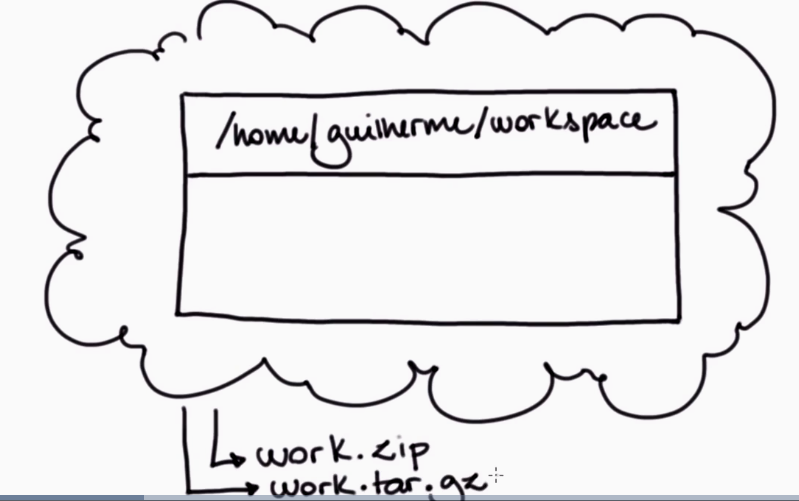 /home/guilherme/workspace
work.zip
work.tar.gz